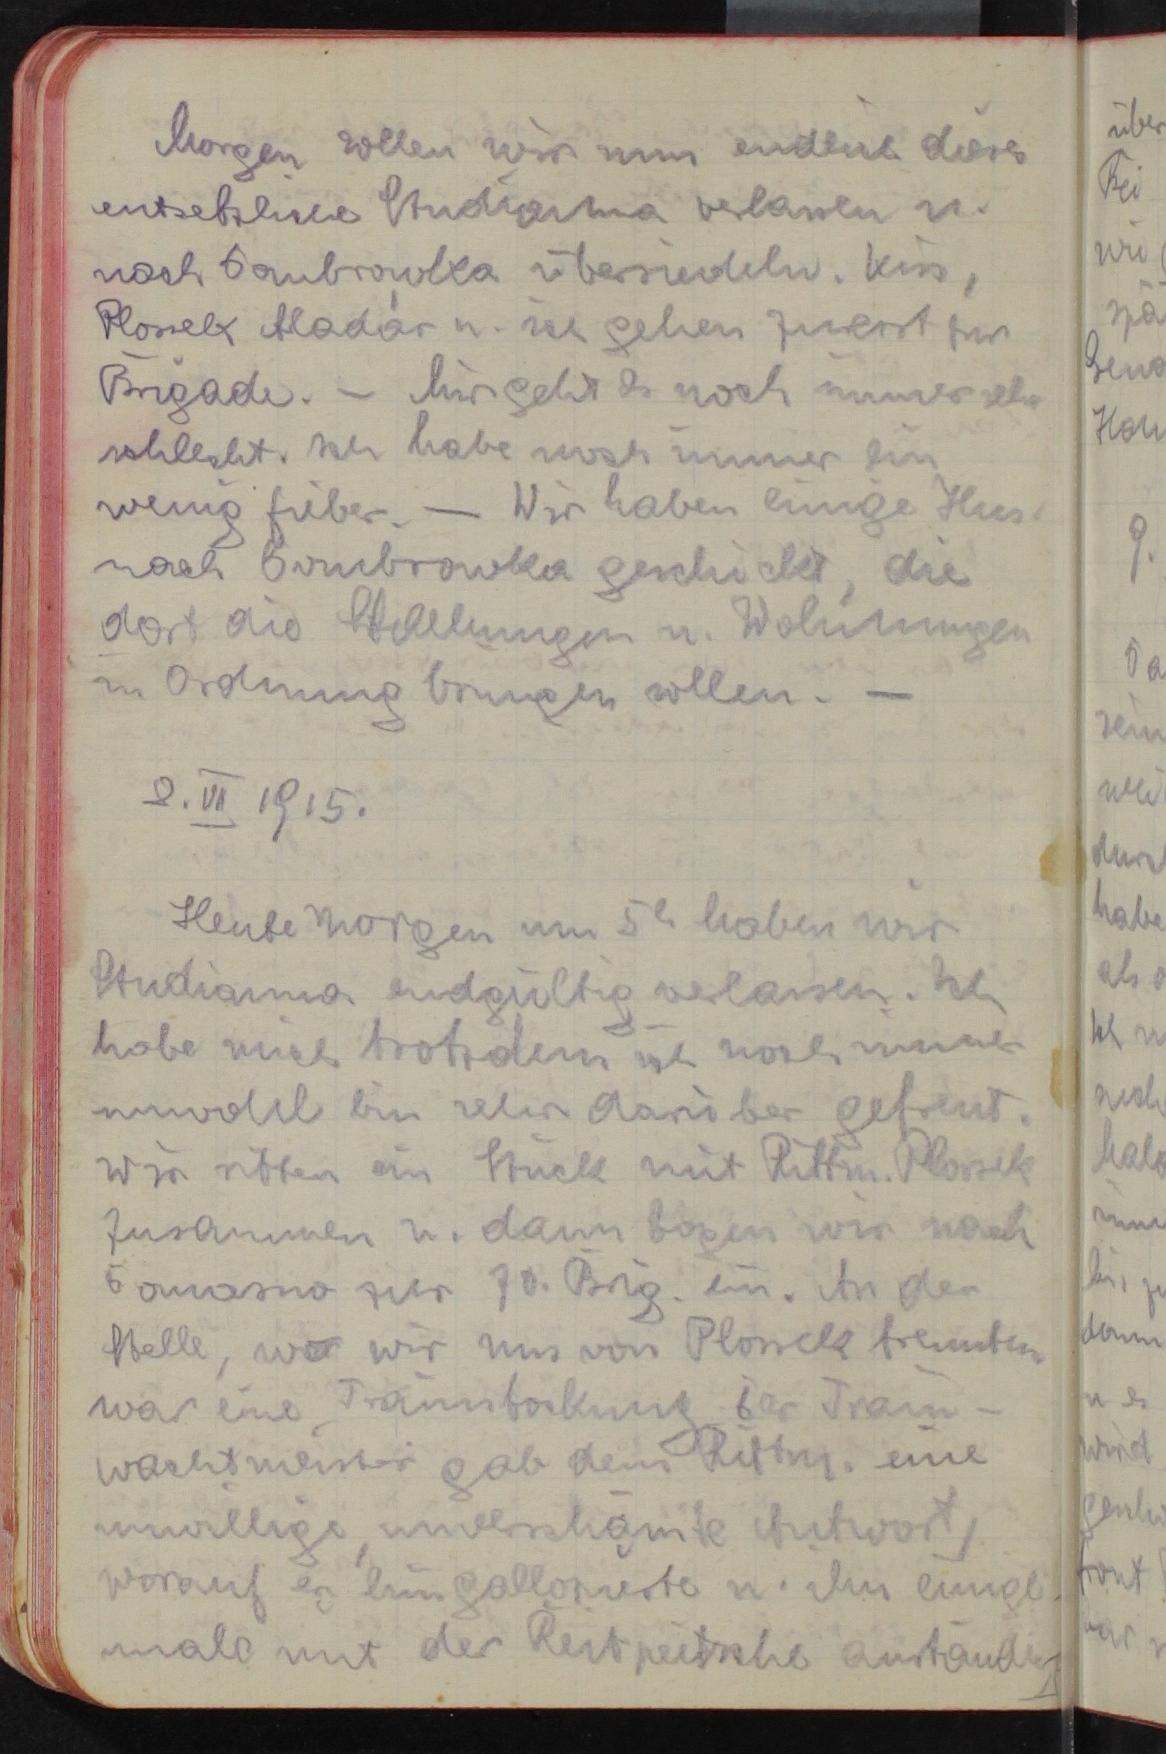 Morgen sollen wir nun endlich dieses
entsetzliche Studianna verlassen u.
nach Dombrowka übersiedeln. Kiss,
Plossek Aladár u. ich gehen zuerst zur
Brigade. – Mir geht es noch immer sehr
schlecht. Ich habe noch immer ein
wenig fieber. – Wir haben einige Hus.
nach Dombrowka geschickt, die
dort die Stellungen u. Wohnungen
in Ordnung bringen sollen. –
8. VI 1915.
Heute Morgen um 5h haben wir
Studianna endgültig verlassen. Ich
habe mich trotzdem ich noch immer
unwohl bin sehr darüber gefreut.
Wir ritten ein Stück mit Rittm. Plossek
zusammen u. dann bogen wir nach
zur 70. Brig. ein. An der
Stelle, wo wir uns von Plossek trennten
war eine Trainstockung der Train-
wachtmeister gab dem Rittm. eine
unwillige, unverschämte Antwort,
worauf er hingalloppierte u. ihn einige
male mit der Reitpeitsche
über
Bei
wir
spä
Hau
9.
Da
sein
weit
durch
habe
als
Ich
halb
imm
bis
dann
u es
wird
front
war